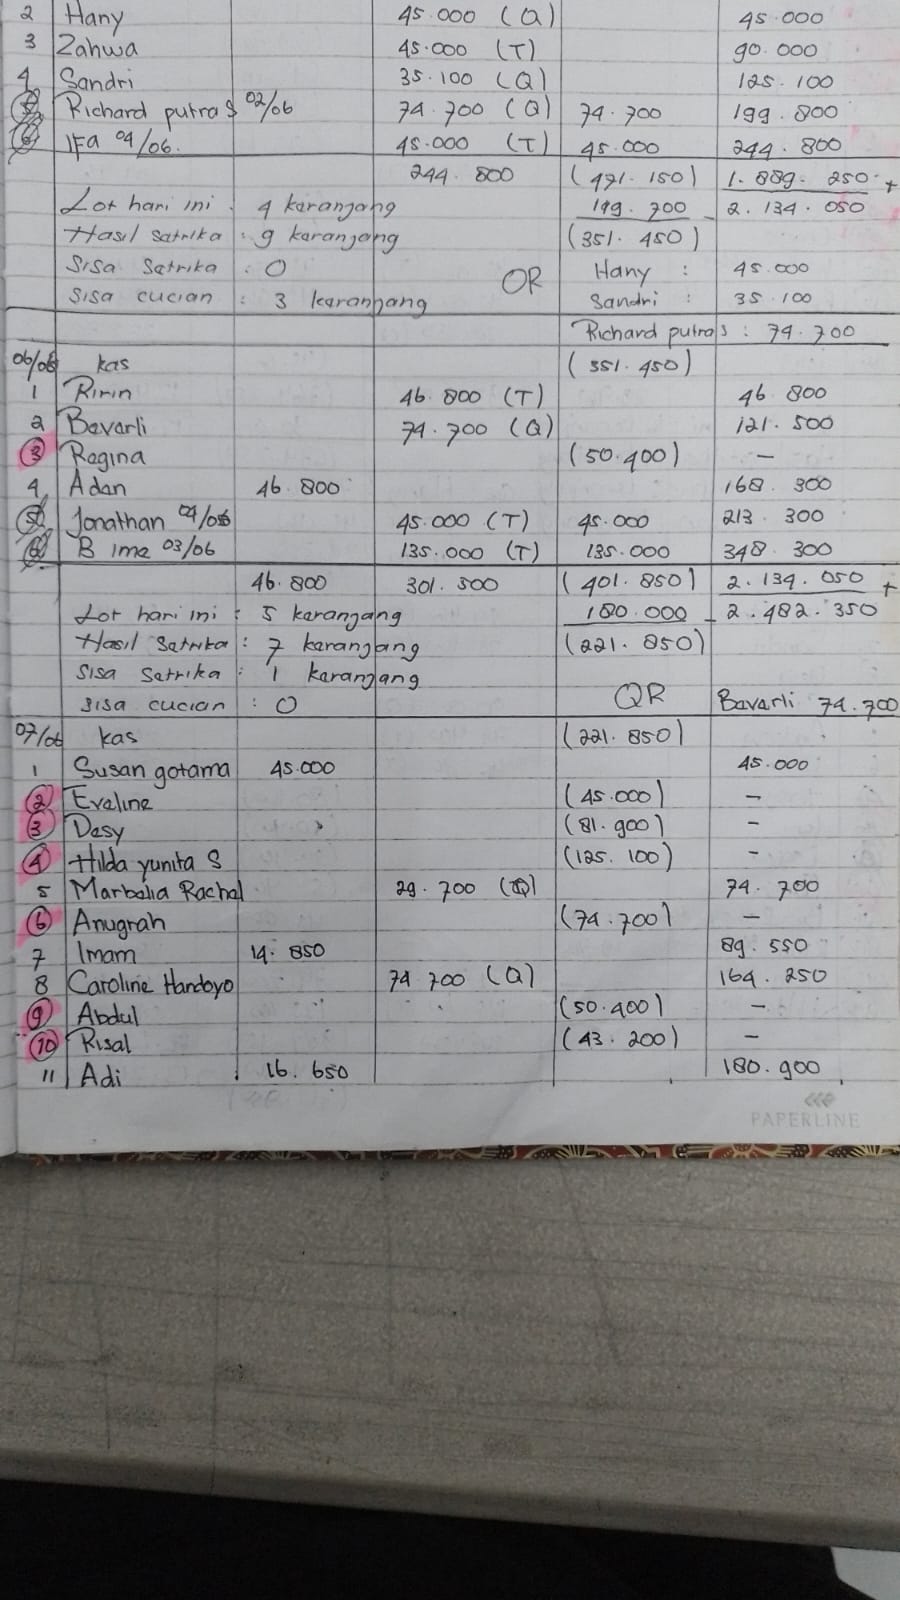 2 Hany 45.000 (Q) 45.000
3 Zahwa 45.000 (T) 90.000
4 Sandri 35.100 (Q) 125.100
Richard putra S 02/06 74.700 (Q) 74.700 199.800
IFA 04/06. 45.000 (T) 45.000 244.800
244.800 (471.150) 1.889.250 +
Lot hari ini : 4 keranjang 119.700 - 2.134.050
Hasil Satrika : 9 keranjang (351.450)
Sisa Satrika : 0 QR Hany : 45.000
Sisa cucian : 3 keranjang Sandri : 35.100
Richard putra S : 74.700
06/06 kas (351.450)
1 Ririn 46.800 (T) 46.800
2 Bavarli 74.700 (Q) 121.500
3 Regina (50.400) -
4 Adan 46.800 168.300
5 Jonathan 04/06 45.000 (T) 45.000 213.300
6 Bima 03/06 135.000 (T) 135.000 348.300
46.800 301.500 (401.850) 2.134.050 +
Lot hari ini : 5 keranjang 180.000 - 2.482.350
Hasil Satrika : 7 keranjang (221.850)
Sisa Satrika : 1 keranjang
Sisa cucian : 0 QR Bavarli 74.700
07/06 kas (221.850)
1 Susan gotama 45.000 45.000
2 Eveline (45.000) -
3 Desy (81.900) -
4 Hilda yunita S (125.100) -
5 Marbelia Rachel 29.700 (Q) 74.700
6 Anugrah (74.700) -
7 Imam 14.850 89.550
8 Caroline Handoyo 74.700 (Q) 164.250
9 Abdul (50.400) -
10 Risal (43.200) -
11 Adi 16.650 180.900
PAPERLINE